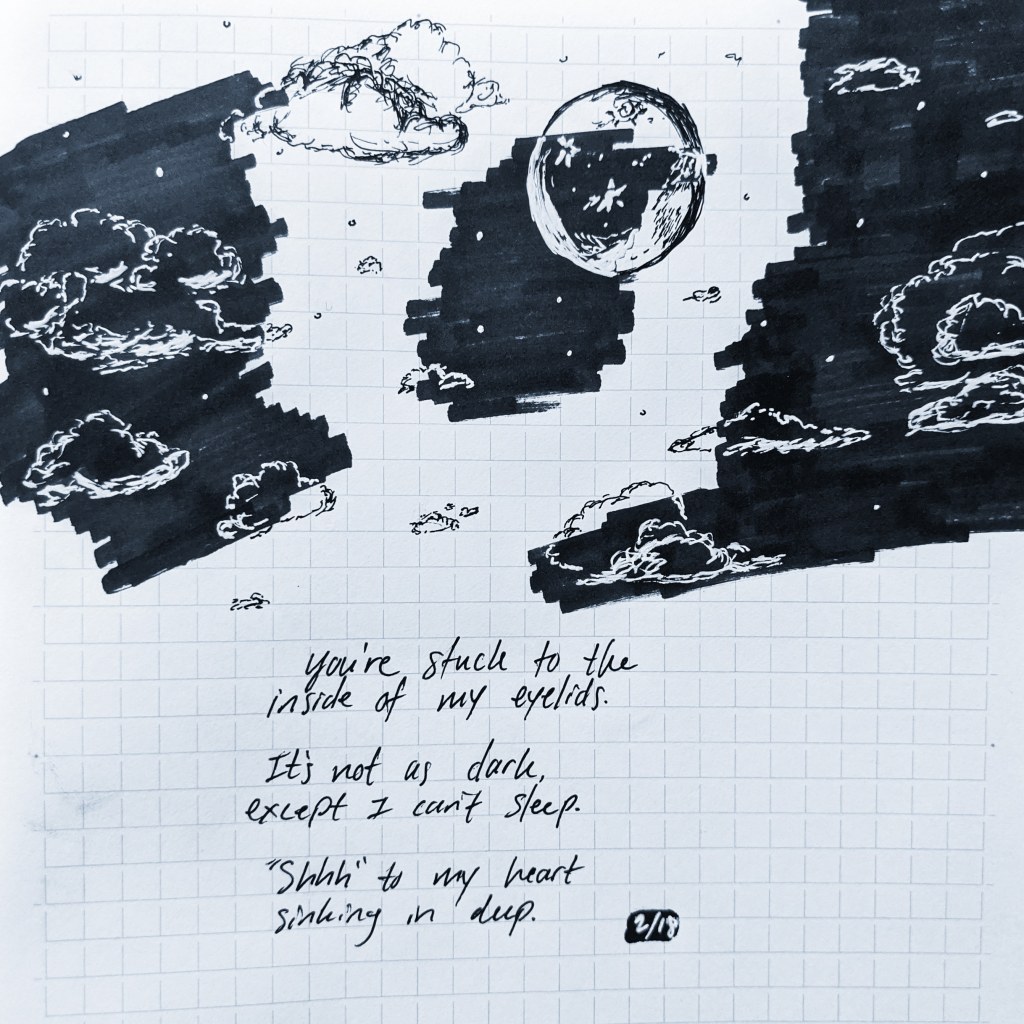 you're stuck to the
inside of my eyelids.
It's not as dark,
except I can't sleep.
"Shhh" to my heart
sinking in deep.
2/18